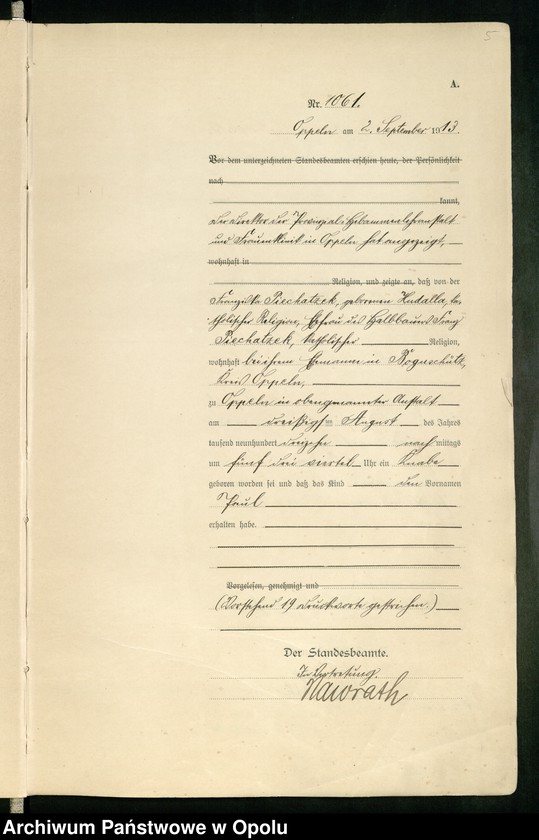 5
A.
Nr. 1061.
Oppeln am 2. September 1913.
Vor dem unterzeichneten Standesbeamten erschien heute, der Persönlichkeit
nach
kannt,
Der Direktor der Provinzial-Hebammenlehranstalt
und Frauenklinik in Oppeln hat angezeigt,
wohnhaft in
Religion, und zeigte an, daß von der
Franziska Piechatzek, geborenen Kudalla, ka-
tholischer Religion, Ehefrau des Halbbauers Franz
Piechatzek, katholischer Religion,
wohnhaft bei ihrem Ehemanne in Boguschütz,
Kreis Oppeln,
zu Oppeln in obengenannter Anstalt
am dreißigsten August des Jahres
tausend neunhundert dreizehn nachmittags
um fünf drei viertel Uhr ein Knabe
geboren worden sei und daß das Kind den Vornamen
Paul
erhalten habe.
Vorgelesen, genehmigt und
(Vorstehend 19 Druckworte gestrichen.)
Der Standesbeamte.
In Vertretung.
Nawrath
Archiwum Państwowe w Opolu